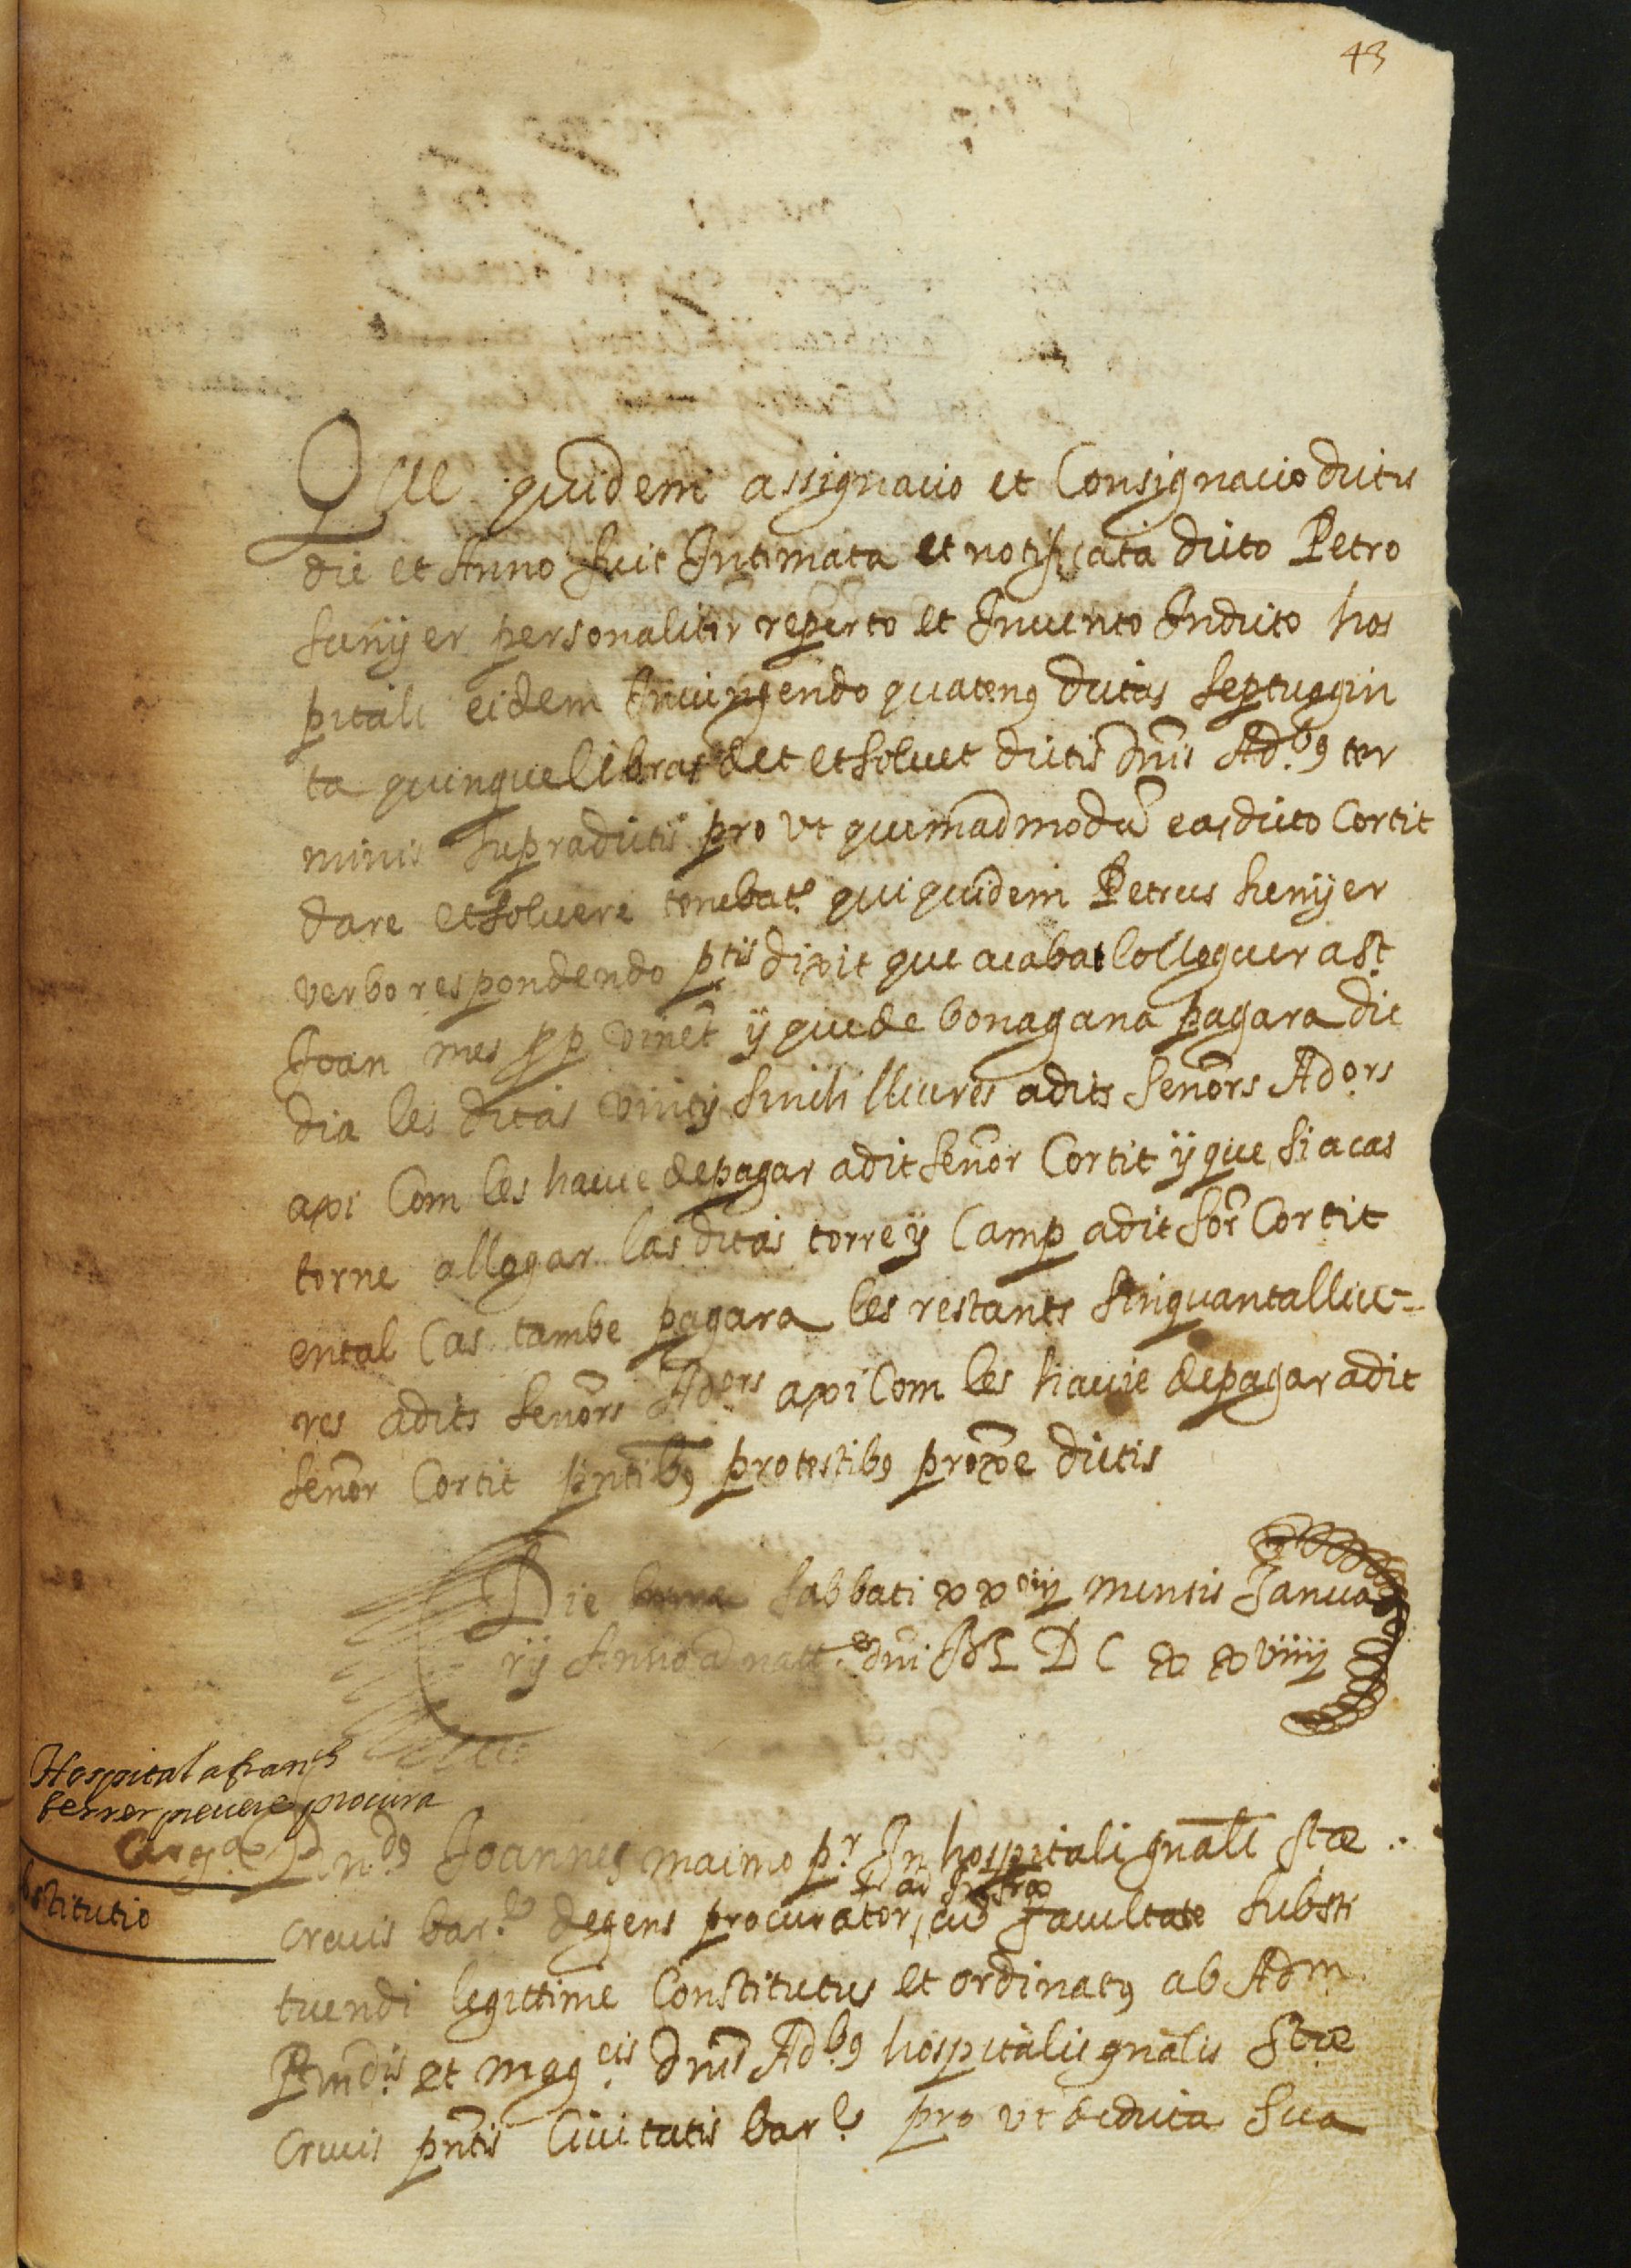 43
Quae quidem assignacio et Consignacio dictis
die et Anno fuit Intimata et notificata dicto Petro
Sunÿer personaliter reperto et Invento In dicto hos
pitali eidem Iniungendo quatenꝯ dictas septuagin
ta quinque libras det et solvet dictis dnis Ad.bꝯ ter
minis supradictis pro vt quemadmodũ eas dicto Cortit
dare et solvere tenebat.r qui quidem Petrus Sunÿer
verbo respondendo p.tis dixit que acabat lo lloguer a St
Joan mes pp vinet ÿ que de bonagana pagara dit
dia les ditas vint ÿ sinch lliures a dits señors Ad.ors
axi Com les havie de pagar a dit señor Cortit ÿ que si acas
torne allogar las ditas torre ÿ Camp a dit Sor Cortit
en tal Cas tambe pagara les restants sinquanta lliu-
res a dits señors Ad.ors axi Com les havie de pagar a dit
señor Cortit pntibꝯ pro testibꝯ proxe dictis
Die sabbati xxviiij mensis Janua
rÿ Anno a natt.e dni M D C x x viiij
Hospital a franch
ferrer prevere procura
stitutio
R.ndꝯ Joannes maimo p.r In hospitali gnali Stæ
ad infra
crucis bar.e degens procurator, cũ facultate substi
tuendi legittime Constitutus et ordinatꝯ ab Adm.
R.ndis et mag.cis dnis Ad.bꝯ hospitalis gnalis Stæ
crucis pntis Civitatis bar.e pro vt de dicta sua